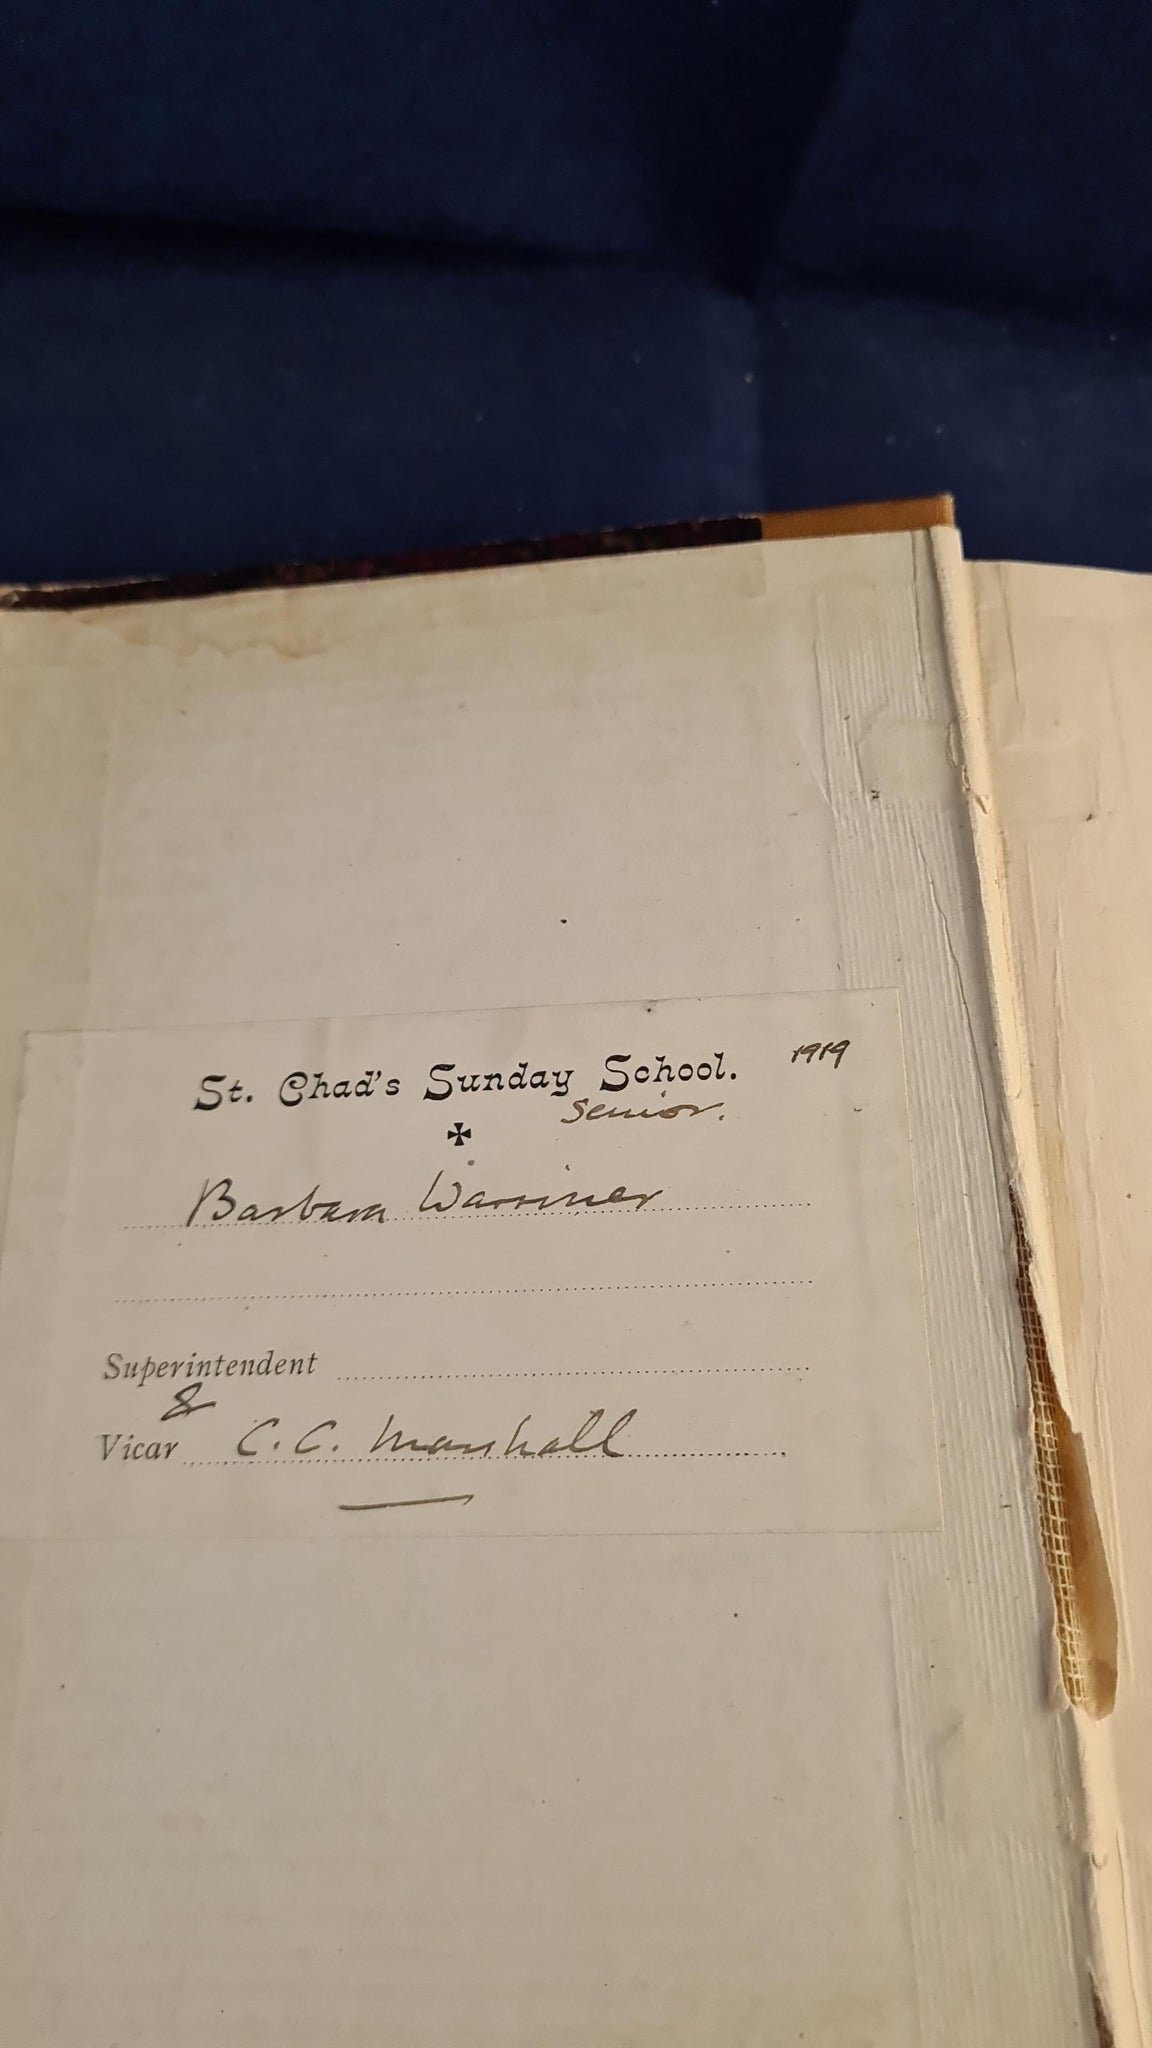 St. Chad's Sunday School. 1919
Senior.
Barbara Warriner
Superintendent
&
Vicar C. C. Marshall